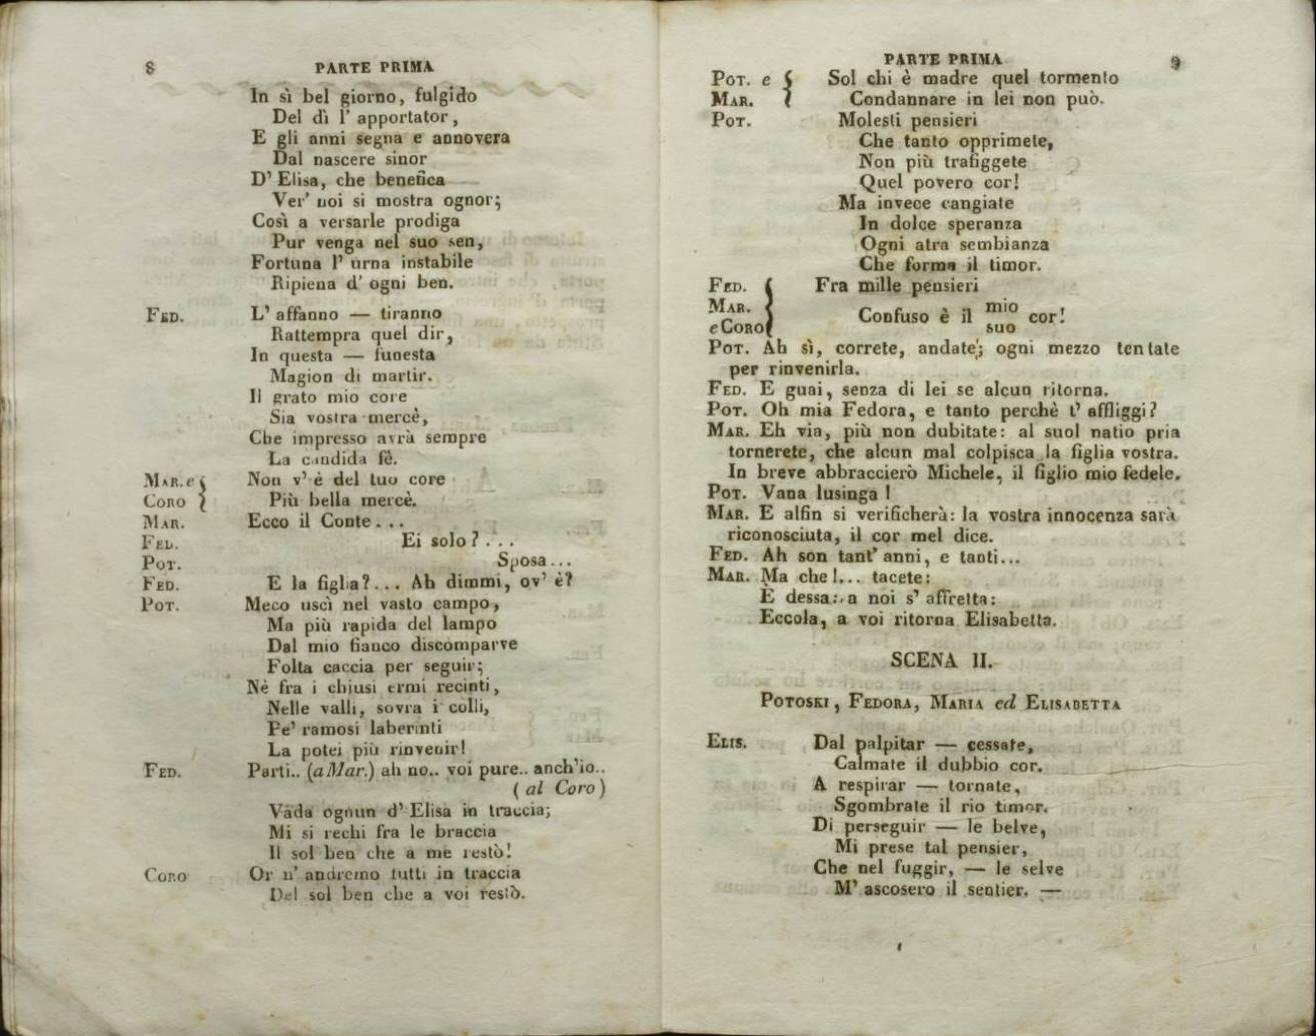 8 PARTE PRIMA
In sì bel giorno, fulgido
Del dì l' apportator,
E gli anni segna e annovera
Dal nascere sinor
D' Elisa, che benefica
Ver' noi si mostra ognor;
Così a versarle prodiga
Pur venga nel suo sen,
Fortuna l' urna instabile
Ripiena d' ogni ben.
FED. L' affanno — tiranno
Rattempra quel dir,
In questa — funesta
Magion di martir.
Il grato mio core
Sia vostra mercè,
Che impresso avrà sempre
La candida fè.
MAR. e Non v' è del tuo core
CORO Più bella mercè.
MAR. Ecco il Conte...
FED. Ei solo?...
POT. Sposa...
FED. E la figlia?... Ah dimmi, ov' è?
POT. Meco uscì nel vasto campo,
Ma più rapida del lampo
Dal mio fianco discomparve
Folta caccia per seguir;
Nè fra i chiusi ermi recinti,
Nelle valli, sovra i colli,
Pe' ramosi laberinti
La potei più rinvenir!
FED. Parti.. (a Mar.) ah no.. voi pure.. anch'io..
(al Coro)
Vada ognun d' Elisa in traccia;
Mi si rechi fra le braccia
Il sol ben che a me restò!
CORO Or n' andremo tutti in traccia
Del sol ben che a voi restò.
PARTE PRIMA 9
POT. e Sol chi è madre quel tormento
MAR. Condannare in lei non può.
POT. Molesti pensieri
Che tanto opprimete,
Non più trafiggete
Quel povero cor!
Ma invece cangiate
In dolce speranza
Ogni atra sembianza
Che forma il timor.
FED. Fra mille pensieri
MAR. Confuso è il mio cor!
e CORO suo
POT. Ah sì, correte, andate; ogni mezzo tentate
per rinvenirla.
FED. E guai, senza di lei se alcun ritorna.
POT. Oh mia Fedora, e tanto perchè t' affliggi?
MAR. Eh via, più non dubitate: al suol natio pria
tornerete, che alcun mal colpisca la figlia vostra.
In breve abbraccierò Michele, il figlio mio fedele.
POT. Vana lusinga!
MAR. E alfin si verificherà: la vostra innocenza sarà
riconosciuta, il cor mel dice.
FED. Ah son tant' anni, e tanti...
MAR. Ma che!... tacete:
È dessa.. a noi s' affretta:
Eccola, a voi ritorna Elisabetta.
SCENA II.
POTOSKI, FEDORA, MARIA ed ELISABETTA
ELIS. Dal palpitar — cessate,
Calmate il dubbio cor.
A respirar — tornate,
Sgombrate il rio timor.
Di perseguir — le belve,
Mi prese tal pensier,
Che nel fuggir, — le selve
M' ascosero il sentier. —